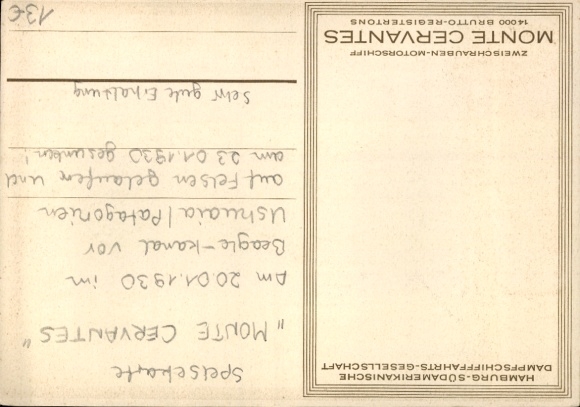 HAMBURG-SÜDAMERIKANISCHE
DAMPFSCHIFFFAHRTS-GESELLSCHAFT
ZWEISCHRAUBEN-MOTORSCHIFF
MONTE CERVANTES
14000 BRUTTO-REGISTERTONS
Speisekarte
"MONTE CERVANTES"
Am 20.01.1930 im
Beagle-kanal vor
Ushuaia/Patagonien
auf Felsen gelaufen und
am 23.01.1930 gesunken!
Sehr gute Erhaltung
13€